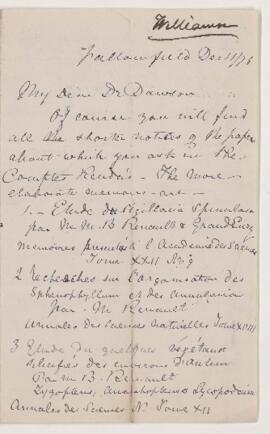 Williamson
Fallowfield Dec 11/76
My dear Dr Dawson
Of course you will find
all the shorter notices of the papers
about which you ask in the
Comptes Rendus - The more
elaborate memoirs are -
1. - Etude du Sigillaria Spinulosa
par M M. B Renault & Grand'Eury
memoires presentés à l'Academie des Sciences
Tome XXII No 9
2 Recherches sur l'organisation des
Sphenophyllum et des annularia
par M Renault
annales des Sciences Naturelles Tome XVIII
3 Etude du quelques Végétaux
silicifiés des environs d'autun
Par M B. Renault
Zygopteris, Anachoropteris & Lycopodium
Annales des Sciences N. Tome XII